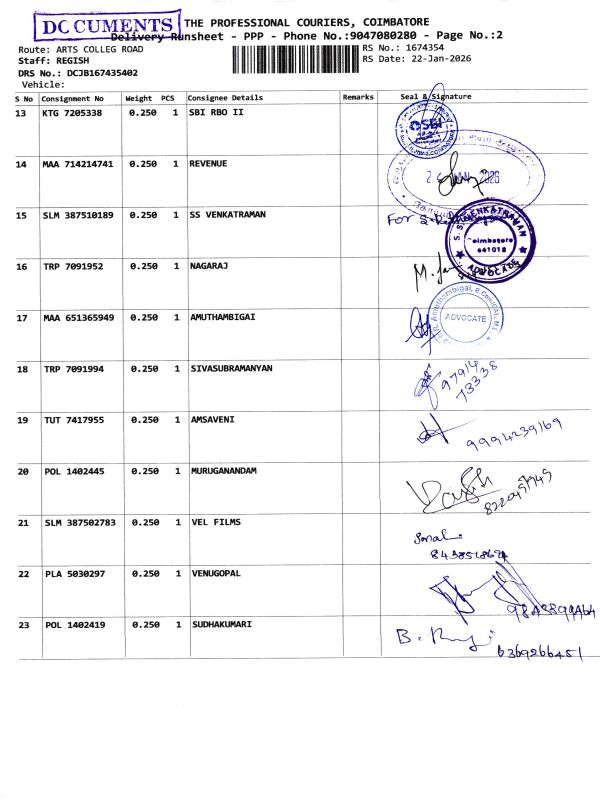 DOCUMENTS
THE PROFESSIONAL COURIERS, COIMBATORE
Delivery Runsheet - PPP - Phone No.:9047080280 - Page No.:2
Route: ARTS COLLEG ROAD
RS No.: 1674354
Staff: REGISH
RS Date: 22-Jan-2026
DRS No.: DCJB167435402
Vehicle:
S No Consignment No Weight PCS Consignee Details Remarks Seal & Signature
13 KTG 7205338 0.250 1 SBI RBO II
SBI
14 MAA 714214741 0.250 1 REVENUE
2026
15 SLM 387510189 0.250 1 SS VENKATRAMAN
For
S.S. VENKATRAMAN
Coimbatore
641018
ADVOCATE
16 TRP 7091952 0.250 1 NAGARAJ
17 MAA 651365949 0.250 1 AMUTHAMBIGAI
ADVOCATE
18 TRP 7091994 0.250 1 SIVASUBRAMANYAN
97914
73338
19 TUT 7417955 0.250 1 AMSAVENI
9994239169
20 POL 1402445 0.250 1 MURUGANANDAM
21 SLM 387502783 0.250 1 VEL FILMS
22 PLA 5030297 0.250 1 VENUGOPAL
23 POL 1402419 0.250 1 SUDHAKUMARI
6369266451